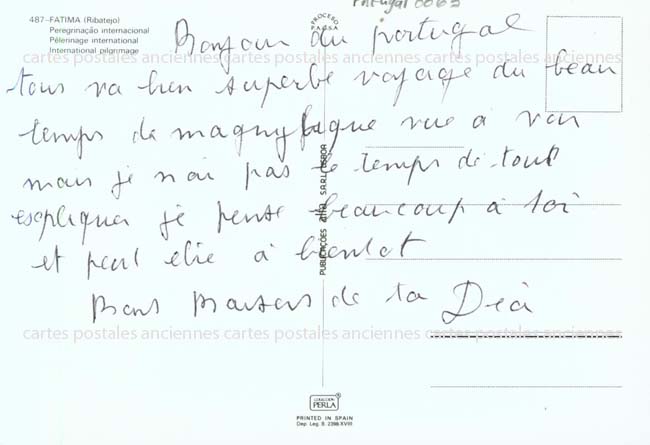 Portugal 0063
487-FATIMA (Ribatejo)
Peregrinação internacional
Pélerinage international
International pilgrimage
PROCESO
Bonjour du portugal
cartes postales anciennes cartes postales anciennes cartes postales anciennes
tous va bien superbe voyage du beau
temps de magnyfique vue a voir
mais je n'ai pas le temps de tout
esepliquer je pense beaucoup à toi
et peut etre à bientot
PUBLICAÇÕES S.A.R.L. LISBOA
Bons Baisers de ta Déa
cartes postales anciennes cartes postales anciennes cartes postales anciennes
COLECCION
PERLA
PRINTED IN SPAIN
Dep. Leg. B. 2398-XVIII